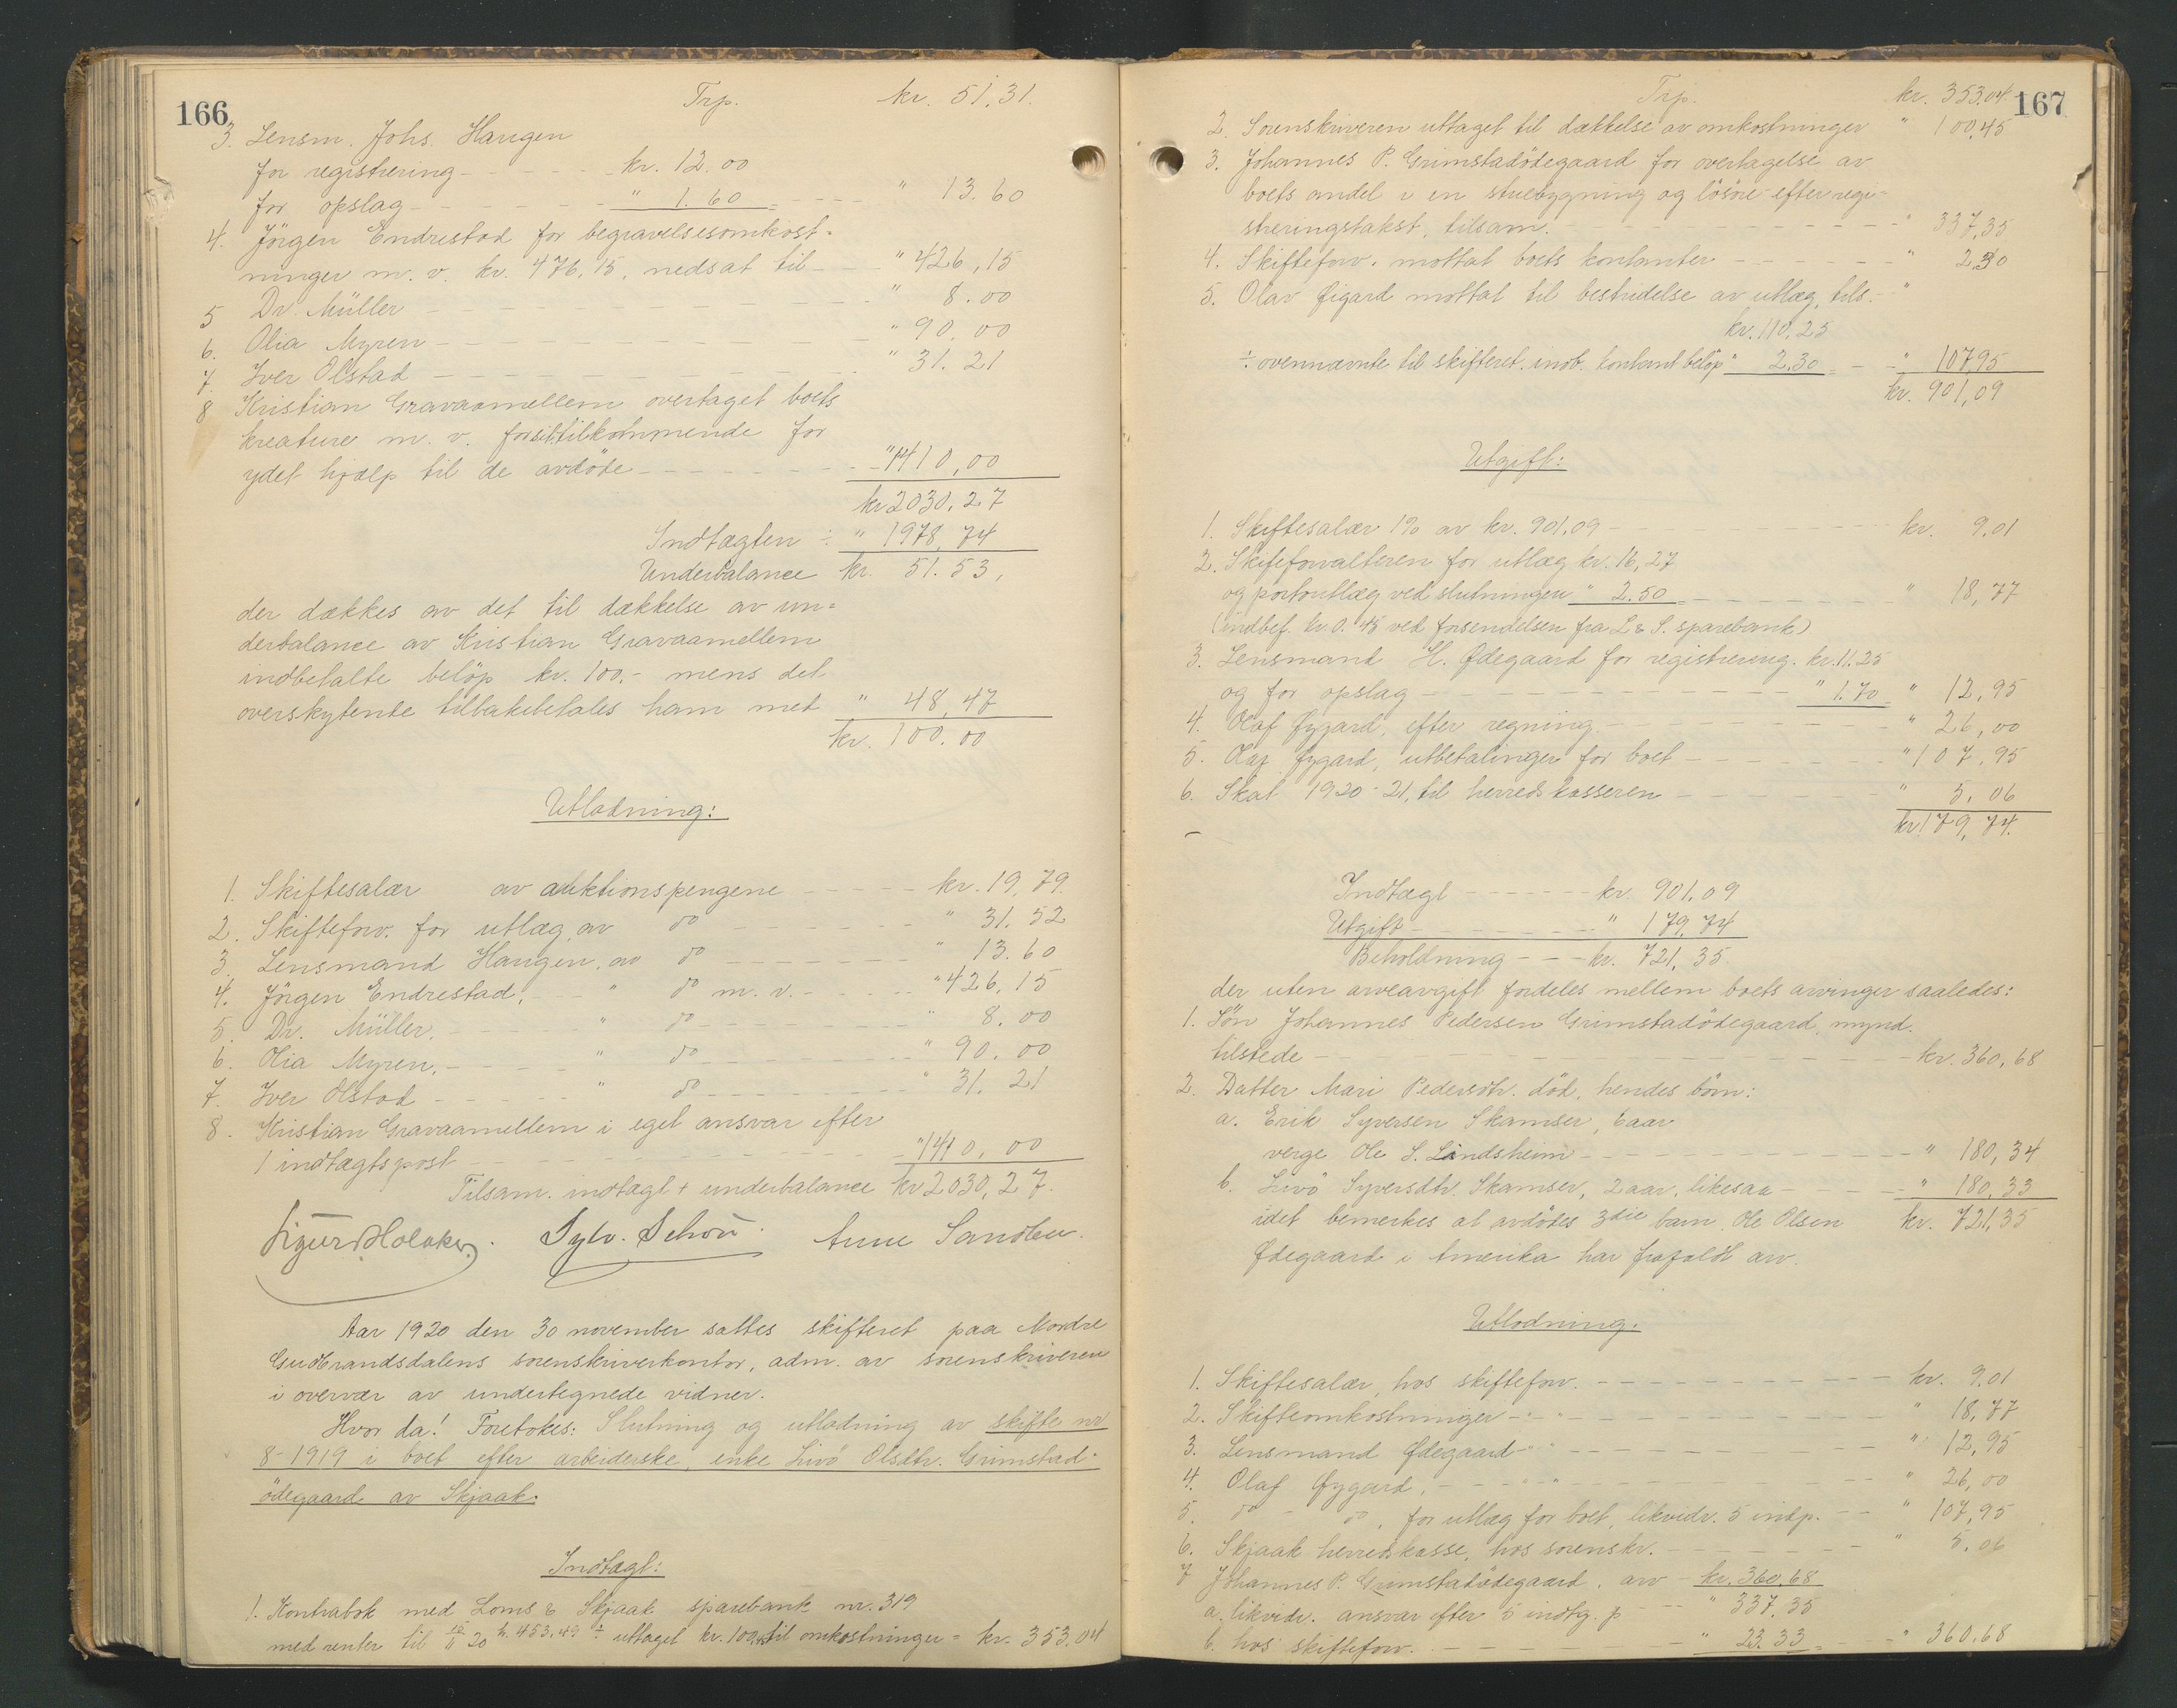 166
Trp. kr. 51.31.
3. Lensm. Johs. Haugen
for registrering - - - - - kr. 12.00
for opslag - - - - - " 1.60 - - - " 13.60
4. Jörgen Endrestad for begravelsesomkost-
ninger m. v. kr. 476,15, nedsat til - - " 426,15
5 Dr. Müller - - - - - " 8.00
6. Olia Myren - - - - - " 90.00
7. Iver Olstad - - - - - " 31.21
8 Kristian Gravaamellem overtaget boets
kreature m. v. for sit tilkommende for
ydet hjælp til de avdöde - - - - - " 1410,00
kr 2030,27
Indtægten ÷ " 1978,74
Underbalance kr. 51.53,
der dækkes av det til dækkelse av un-
derbalance av Kristian Gravaamellem
indbetalte belöp kr. 100.- mens det
overskytende tilbakebetales ham met " 48,47
kr. 100.00
Utlodning:
1. Skiftesalær av auktionspengene - - - kr. 19,79.
2. Skifteforv. for utlæg, av do - - - " 31.52
3. Lensmand Haugen, av do - - - " 13.60
4. Jörgen Endrestad, - - " do m. v. - - - " 426.15
5. Dr. Müller, - - - " do - - - " 8.00
6. Olia Myren, - - - " do - - - " 90.00
7. Iver Olstad - - - " do - - - " 31.21
8. Kristian Gravaamellem i eget ansvar efter
1 indtægtspost - - - - - " 1410,00
Tilsam. indtægt + underbalance kr 2030,27.
Sigurd Holaker. Sylv. Schou. Anne Sandbu.
Aar 1920 den 30 november sattes skifteret paa Nordre
Gudbrandsdalens sorenskriverkontor, adm. av sorenskriveren
i overvær av undertegnede vidner.
Hvor da! Foretokes: Slutning og utlodning av skifte nr
8-1919 i boet efter arbeiderske, enke Livö Olsdtr. Grimstad-
ödegaard av Skjaak.
Indtægt:
1. Kontrabok med Loms & Skjaak sparebank nr. 319
med renter til 10/11 20 kr. 453,49 ÷ uttaget kr. 100,45 til omkostninger = kr. 353.04
167
Trp. kr. 353,04
2. Sorenskriveren uttaget til dækkelse av omkostninger " 100,45
3. Johannes P. Grimstadödegaard for overtagelse av
boets andel i en stuebygning og lösöre efter regi-
streringstakst, tilsam. - - - - - " 337,35
4. Skifteforv. mottat boets kontanter - - - - - " 2,30
5. Olav Øigard mottat til bestridelse av utlæg, tils. - "
kr. 110,25
÷ ovennævnte til skifteret. indb. kontant belöp " 2.30 - - " 107,95
kr. 901,09
Utgift:
1. Skiftesalær 1% av kr. 901.09 - - - - - kr. 9.01
2. Skifteforvalteren for utlæg kr. 16,27
og portoutlæg ved slutningen " 2.50 - - - - - " 18,77
(indbef. kr. 0.45 ved forsendelsen fra L & S. sparebank)
3. Lensmand H. Ødegaard for registrering. kr. 11.25
og for opslag - - - - - " 1.70 " 12,95
4. Olaf Øygard, efter regning - - - - - " 26,00
5. Olaf Øygard, utbetalinger for boet - - - - - " 107,95
6. Skat 1920-21, til herredskasseren - - - - - " 5,06
kr 179,74.
Indtægt - - - - - kr. 901.09
Utgift - - - - - " 179,74
Beholdning - - - kr. 721,35.
der uten arveavgift fordeles mellem boets arvinger saaledes:
1. Sön Johannes Pedersen Grimstadödegaard, mynd.
tilstede - - - - - kr. 360,68
2. Datter Mari Pedersdtr. död, hendes börn:
a. Erik Syversen Skamser, 6 aar
verge Ole S. Lindsheim - - - - - " 180,34
b. Livö Syversdtr. Skamser, 2 aar, likesaa - - - " 180,33
idet bemerkes at avdödes 3die barn Ole Olsen kr. 721,35
Ødegaard i Amerika har frafaldt arv.
Utlodning.
1. Skiftesalær, hos skifteforv. - - - - - kr. 9,01
2. Skifteomkostninger - " - - - - - " 18,77
3. Lensmand Ødegaard - " - - - - - " 12,95
4. Olaf Øygard, - - - " - - - - - " 26,00
5. do - do, for utlæg for boet, likvidr. 5 indp. - - " 107,95
6. Skjaak herredskasse, hos sorenskr. - - - - - " 5.06
7 Johannes P. Grimstadödegaard, arv - kr. 360,68
a. likvidr. ansvar efter 5 indtg. p - - " 337,35
b. hos skifteforv. - - - - - " 23.33 - - " 360.68